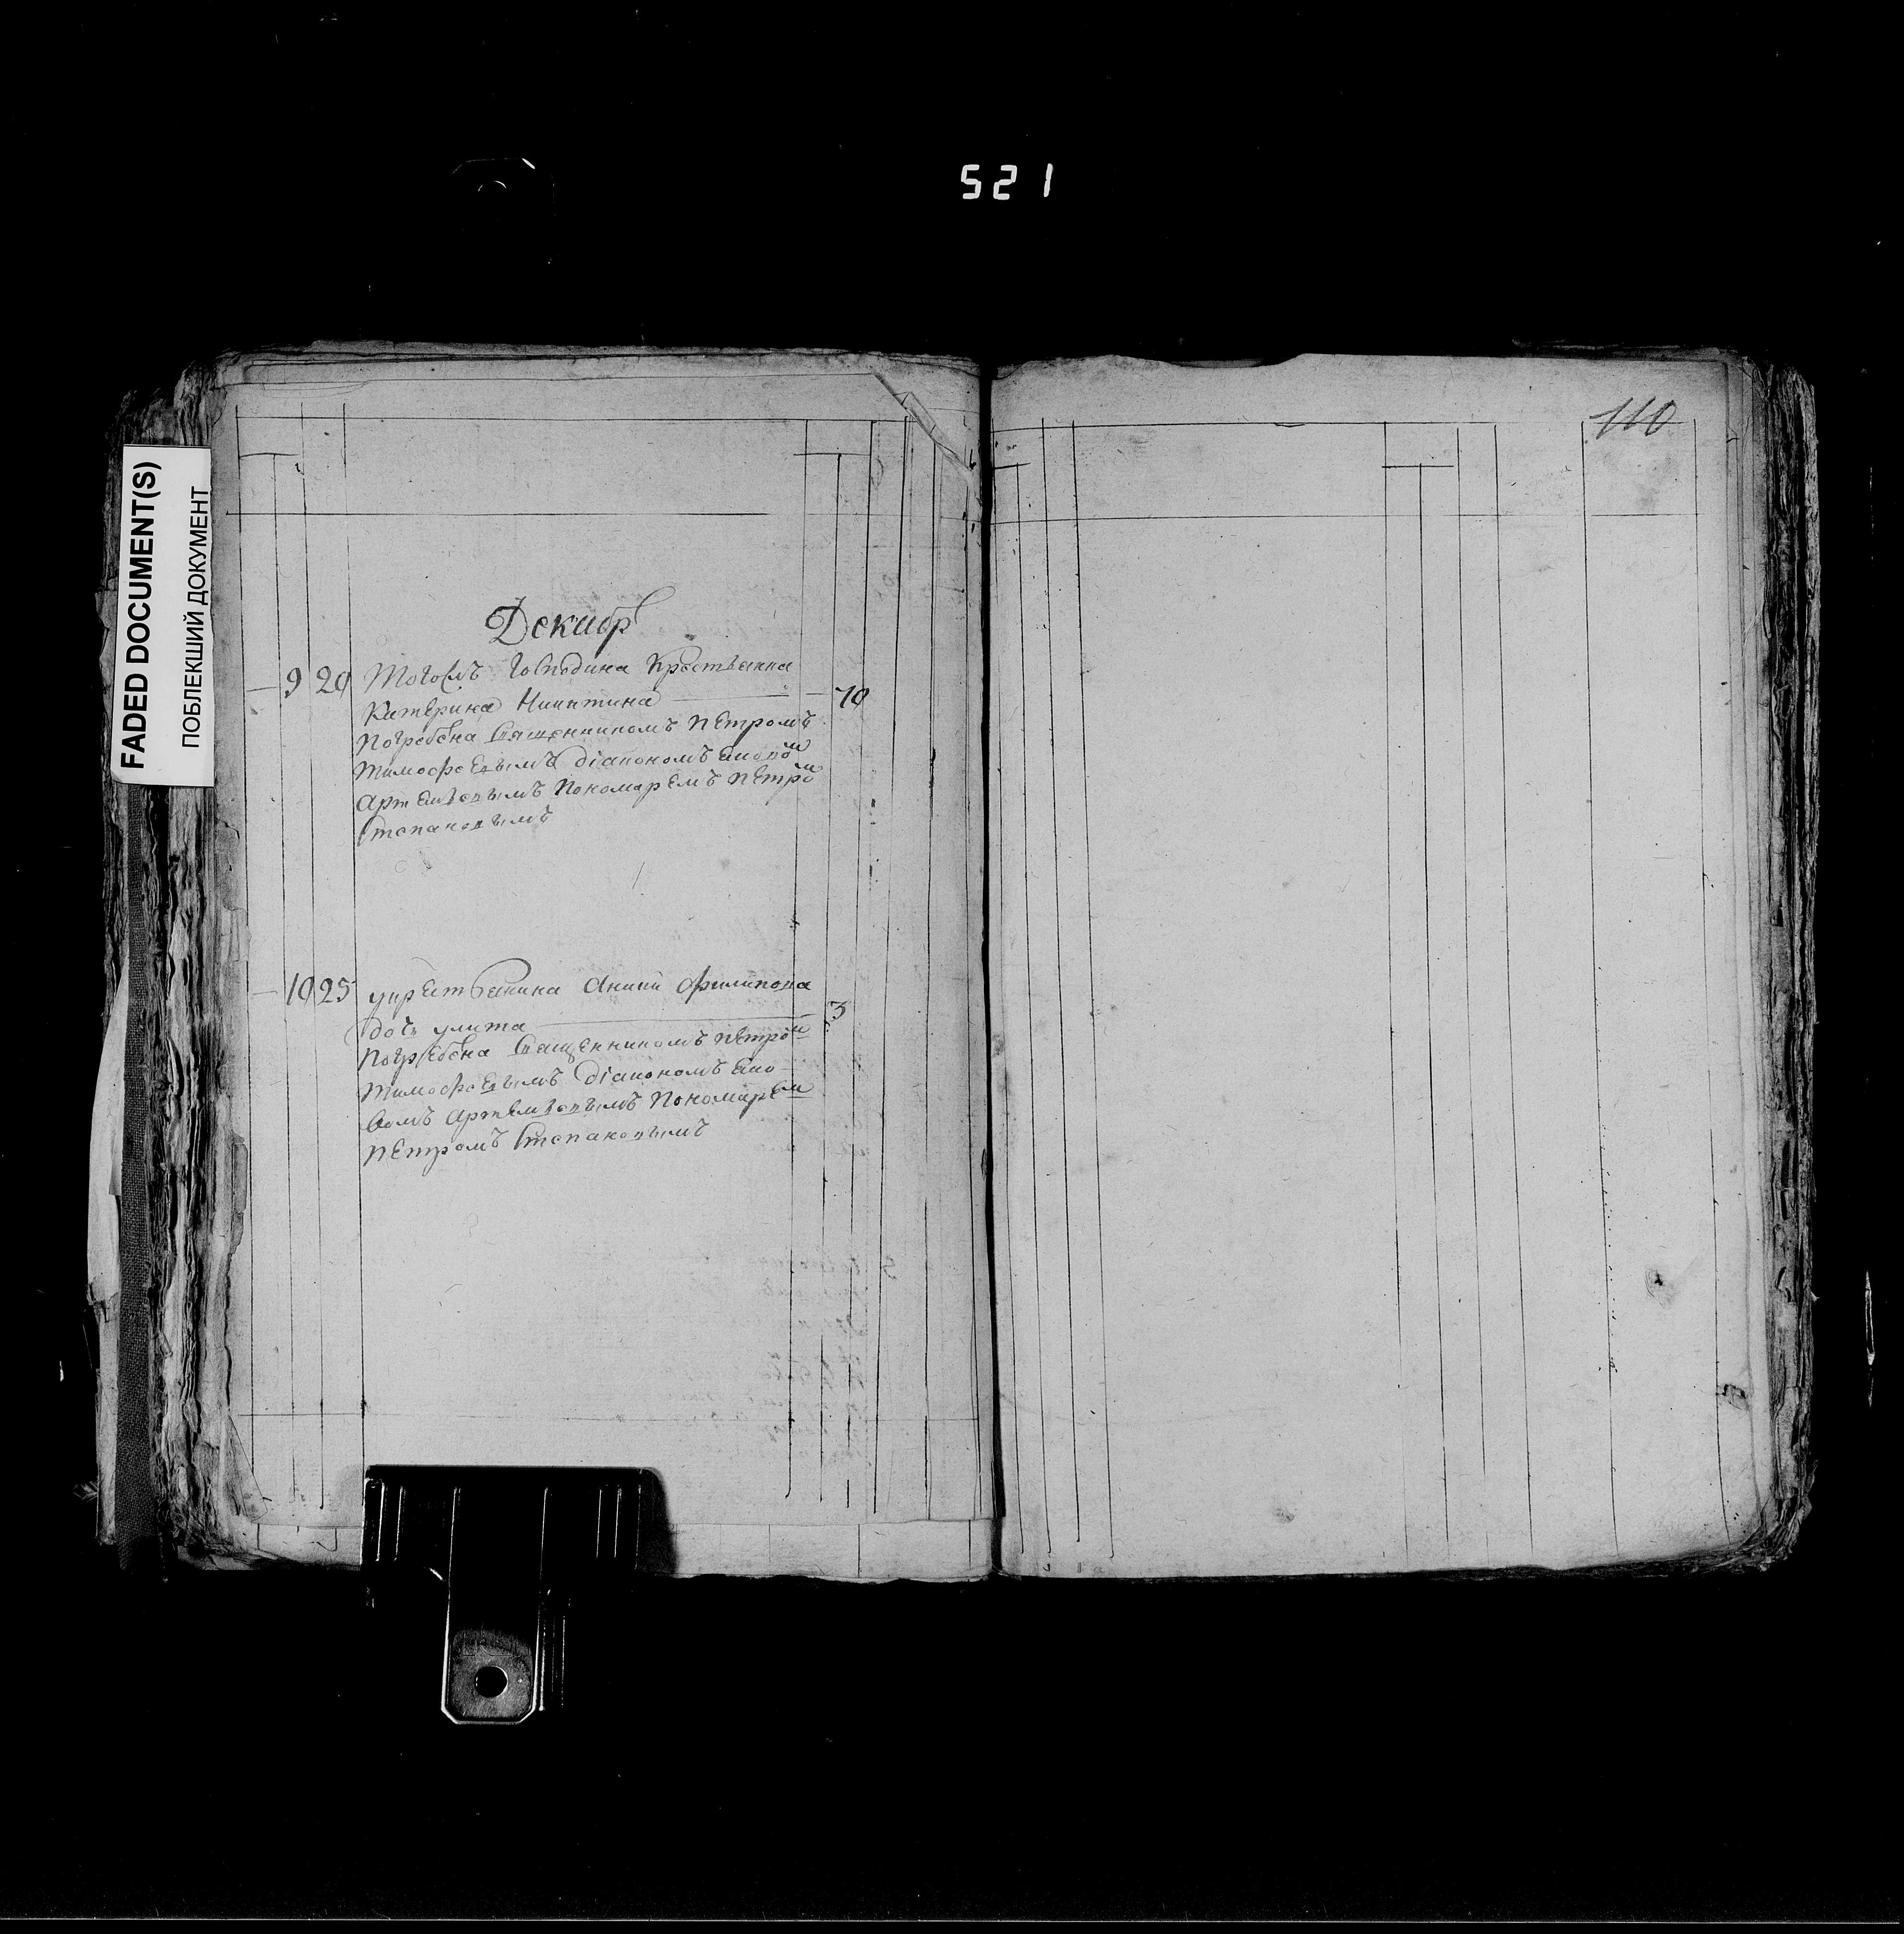 521
110
FADED DOCUMENT(S)
ПОБЛЕКШИЙ ДОКУМЕНТ
Декабр
9 20 Тогожъ господина крестьянка
Катерина Никитина 70
погребена священникомъ петромъ
тимофеевымъ діакономъ
артемьевымъ пономаремъ петром
степановымъ
10 25 укрестьянина филипова
дочь улита 3
погребена священникомъ петром
тимофеевымъ діакономъ яко
вомъ артемьевымъ пономарем
петромъ степановымъ